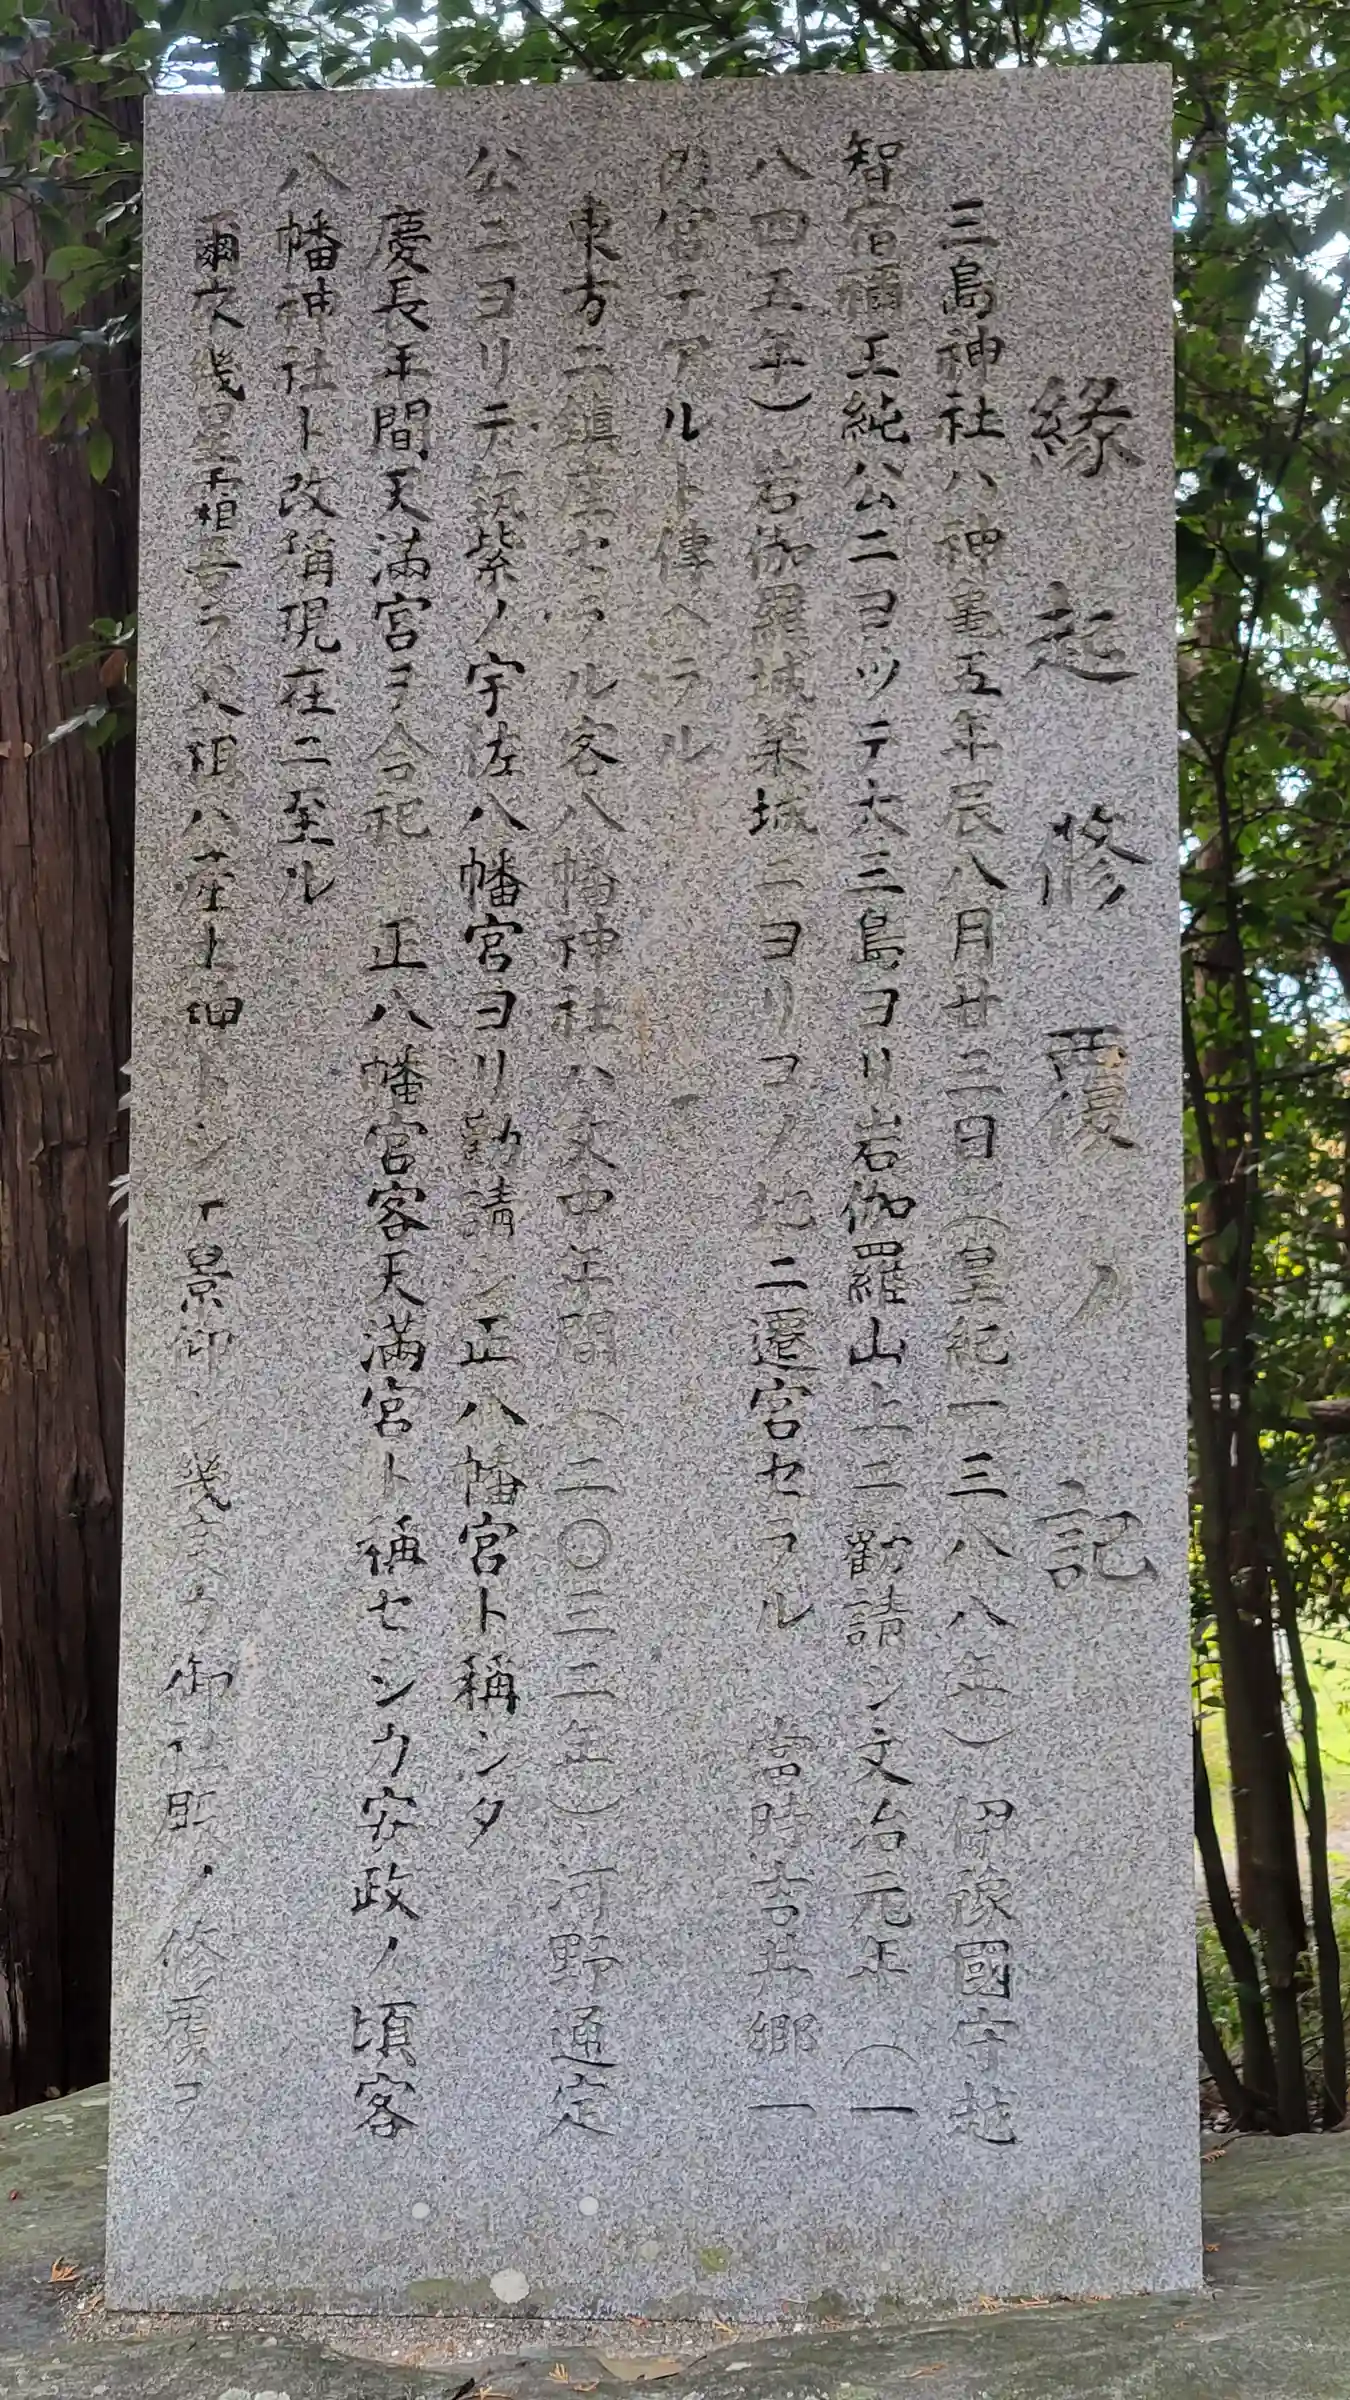 緣起修覆ノ記
三島神社ハ神亀五年辰八月廿三日（皇紀一三八八年）伊豫國守越
智宿禰玉純公ニヨツテ大三島ヨリ岩伽羅山上ニ勸請シ文治元年（一
八四五年）岩伽羅城築城ニヨリコノ地ニ遷宮セラル 當時吉井郷一
ノ宮テアルト傳ヘテル
東方ニ鎮座セラル客八幡神社ハ文中年間（二〇三二年）河野通定
公ニヨリテ筑紫ノ宇佐八幡宮ヨリ勸請シ正八幡宮ト稱シタ
慶長年間天満宮ヲ合祀 正八幡宮客天満宮ト稱セシカ安政ノ頃客
八幡神社ト改稱現在ニ至ル
爾次幾星霜吾ラ父祖ハ産土神トシテ景仰シ幾度カ御社殿ノ修覆ヲ